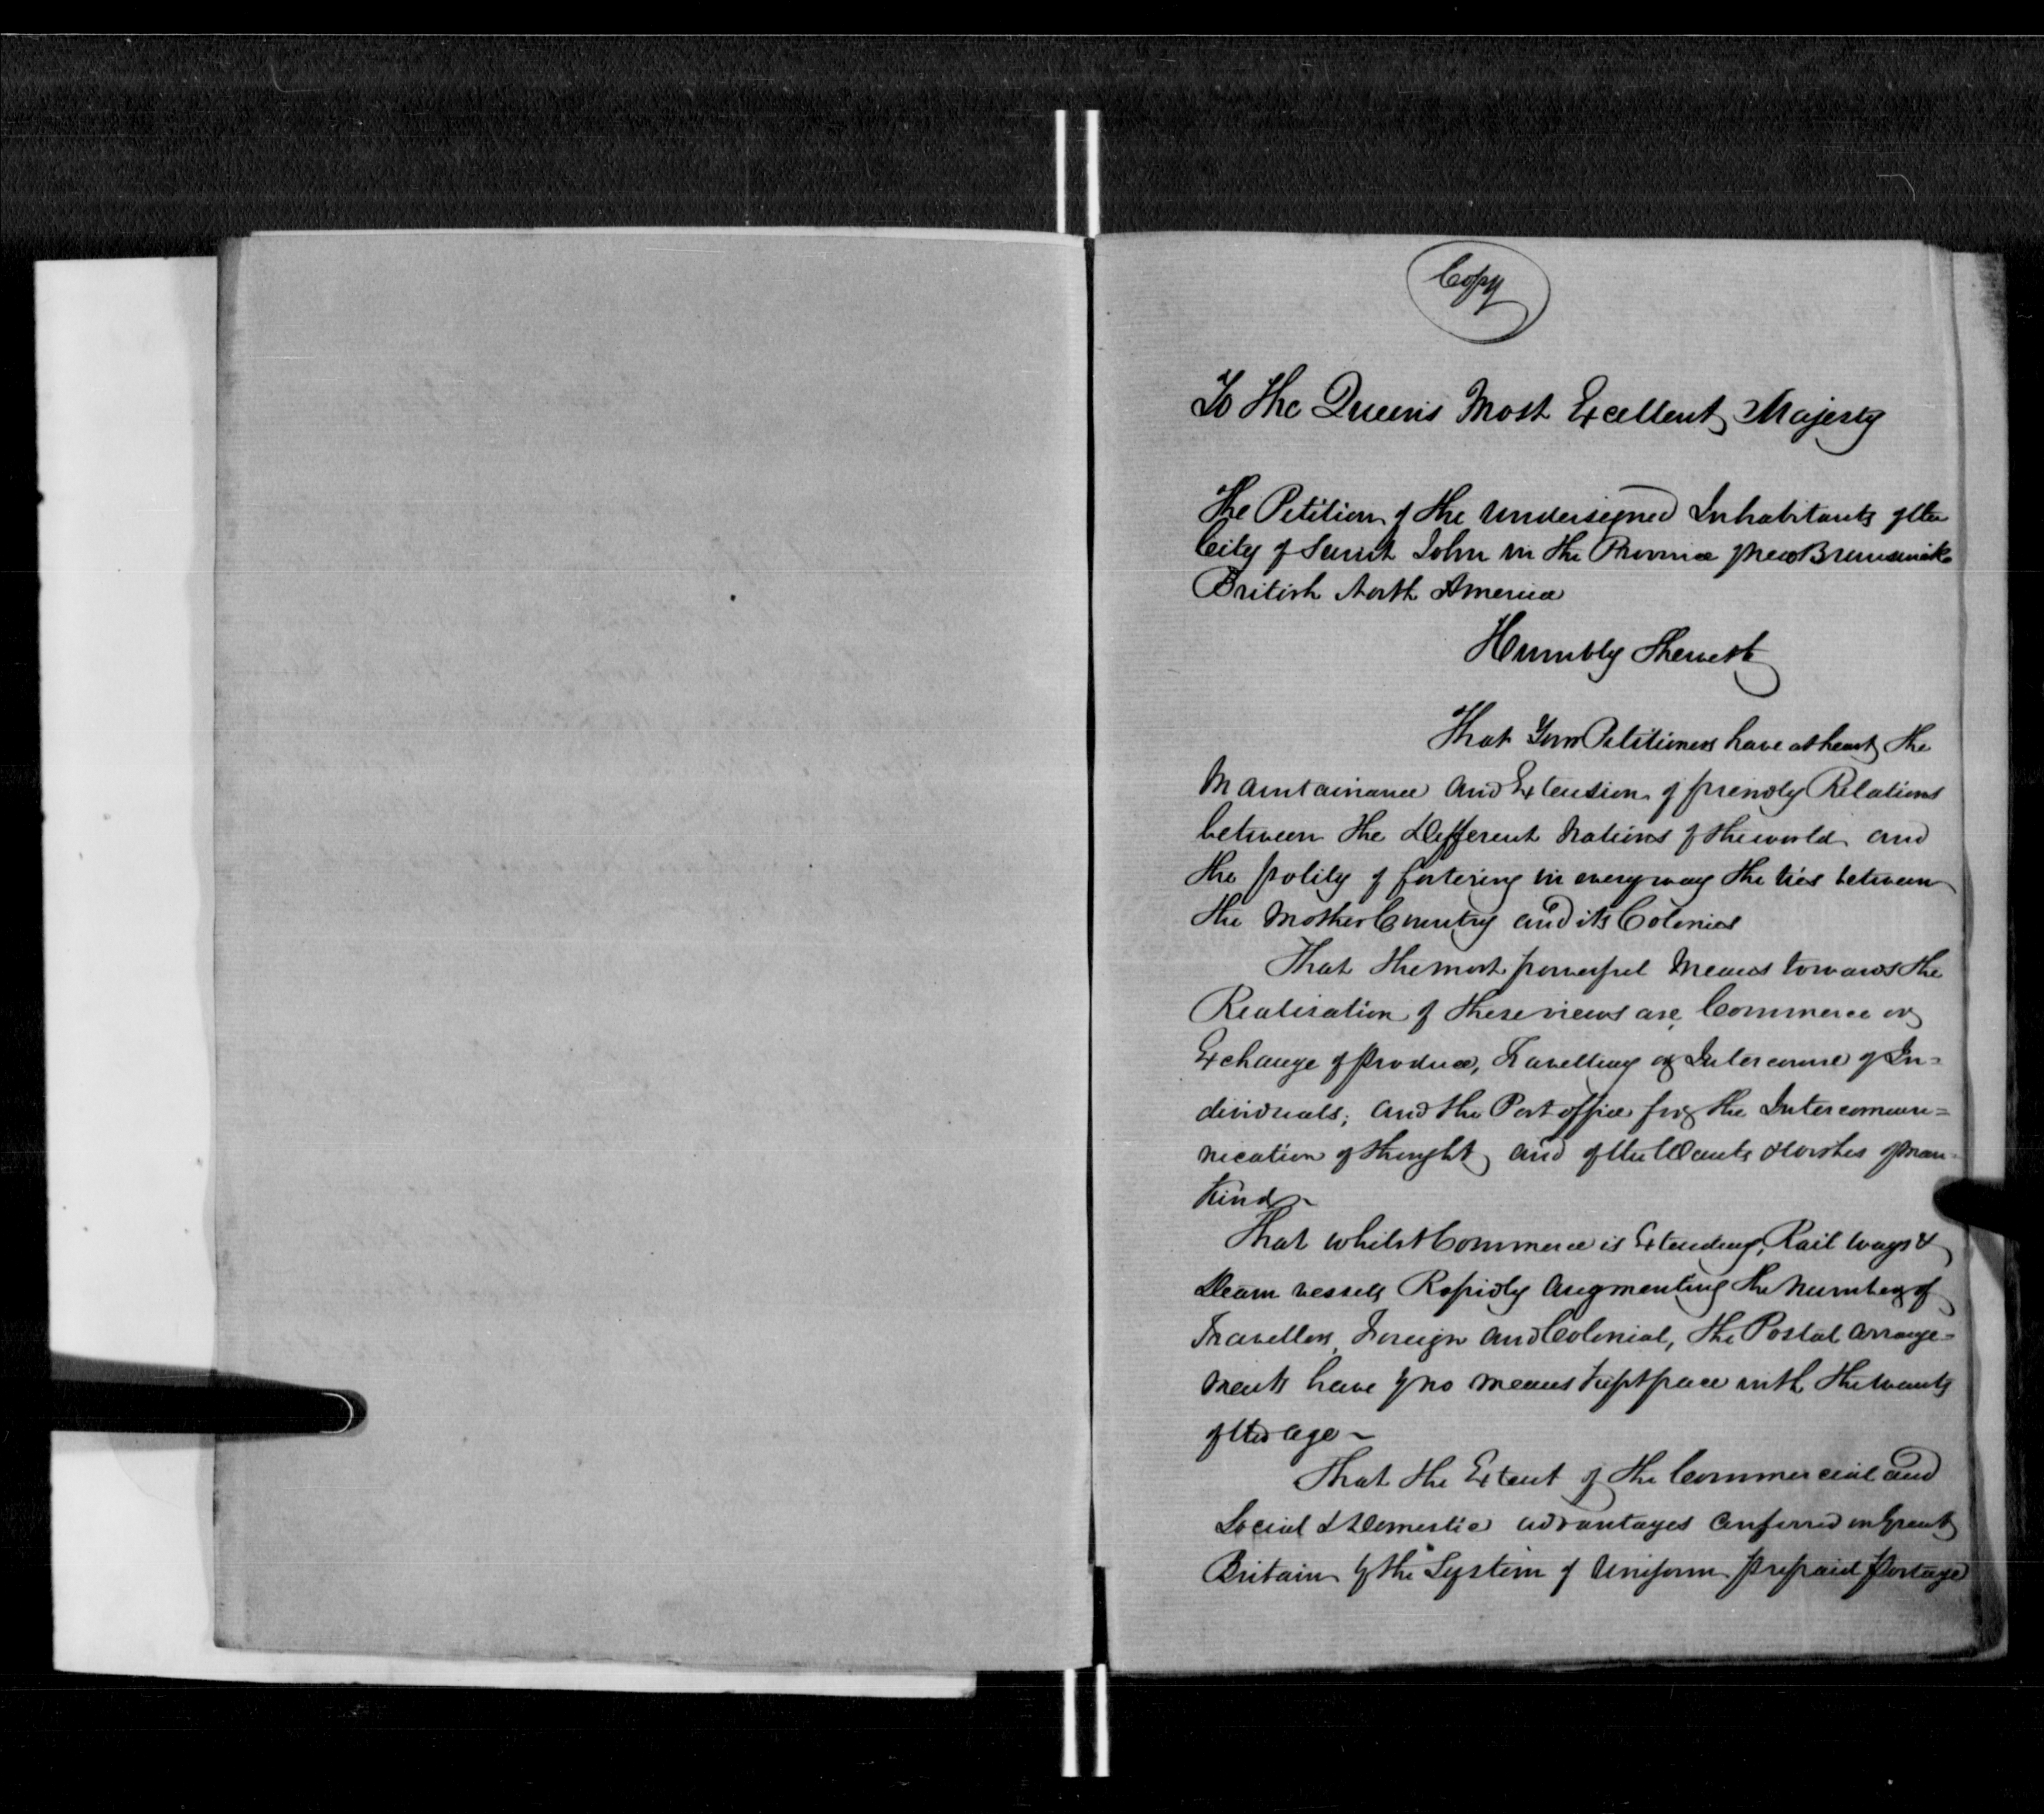 Copy
To The Queen's Most Excellent Majesty
The Petition of the Undersigned Inhabitants of the
City of Saint John in the Province of New Brunswick
British North America
Humbly Sheweth
That Your Petitioners have at heart the
Maintainance and Extension of friendly Relations
between the Different Nations of the world and
the polity of fostering in every way the ties between
the Mother Country and its Colonies
That the most powerful Means towards the
Realisation of these views are, Commerce or
Exchange of Produce, Travelling or Intercourse of In=
dividuals; and the Post office for the Intercommu=
nication of thought and of the Wants & Wishes of man=
Kind ~
That whilst Commerce is Extending, Rail ways &
Steam vessels Rapidly augmenting the Number of
Travellers, Foreign and Colonial, the Postal arrange=
ments have by no means kept pace with the wants
of the age ~
That the Extent of the Commercial and
Social & Domestic advantages conferred on Great
Britain by the System of Uniform prepaid postage